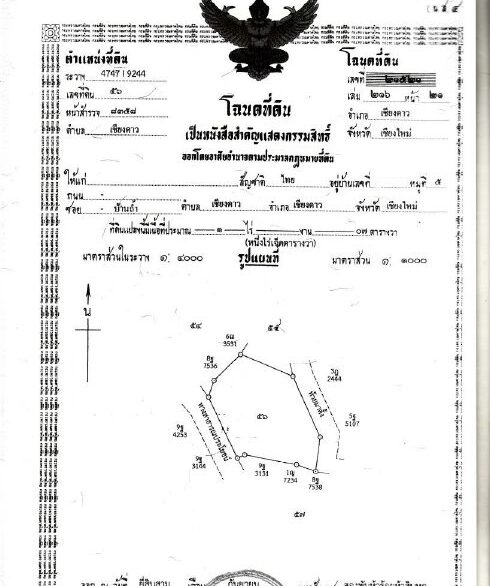 (น.ส.๔)
ตำแหน่งที่ดิน
ระวาง 4747 I 9244
เลขที่ดิน ๕๖
หน้าสำรวจ ๘๓๕๘
ตำบล เชียงดาว
โฉนดที่ดิน
เลขที่ ๒๑๕๒๑
เล่ม ๒๑๖ หน้า ๒๑
อำเภอ เชียงดาว
จังหวัด เชียงใหม่
โฉนดที่ดิน
เป็นหนังสือสำคัญแสดงกรรมสิทธิ์
ออกโดยอาศัยอำนาจตามประมวลกฎหมายที่ดิน
ให้แก่ สัญชาติ ไทย อยู่บ้านเลขที่ หมู่ที่ ๕
ถนน
ซอย บ้านถ้ำ ตำบล เชียงดาว อำเภอ เชียงดาว จังหวัด เชียงใหม่
ที่ดินแปลงนี้มีเนื้อที่ประมาณ ๑ ไร่ งาน ๐๗ ตารางวา
(หนึ่งไร่เจ็ดตารางวา)
มาตราส่วนในระวาง ๑: ๔๐๐๐ รูปแผนที่ มาตราส่วน ๑: ๑๐๐๐
น
๕๔
๕๕
6ฌ
3531
8ฐ
7536
3ฎ
2444
ห้วยนาตั้ง
๕๖
5ฐ
5107
ทางสาธารณประโยชน์
9ฐ
4253
9ฐ
3144
9ฐ
3131
1ญ
7234
8ฐ
7538
๕๗
กันยายน